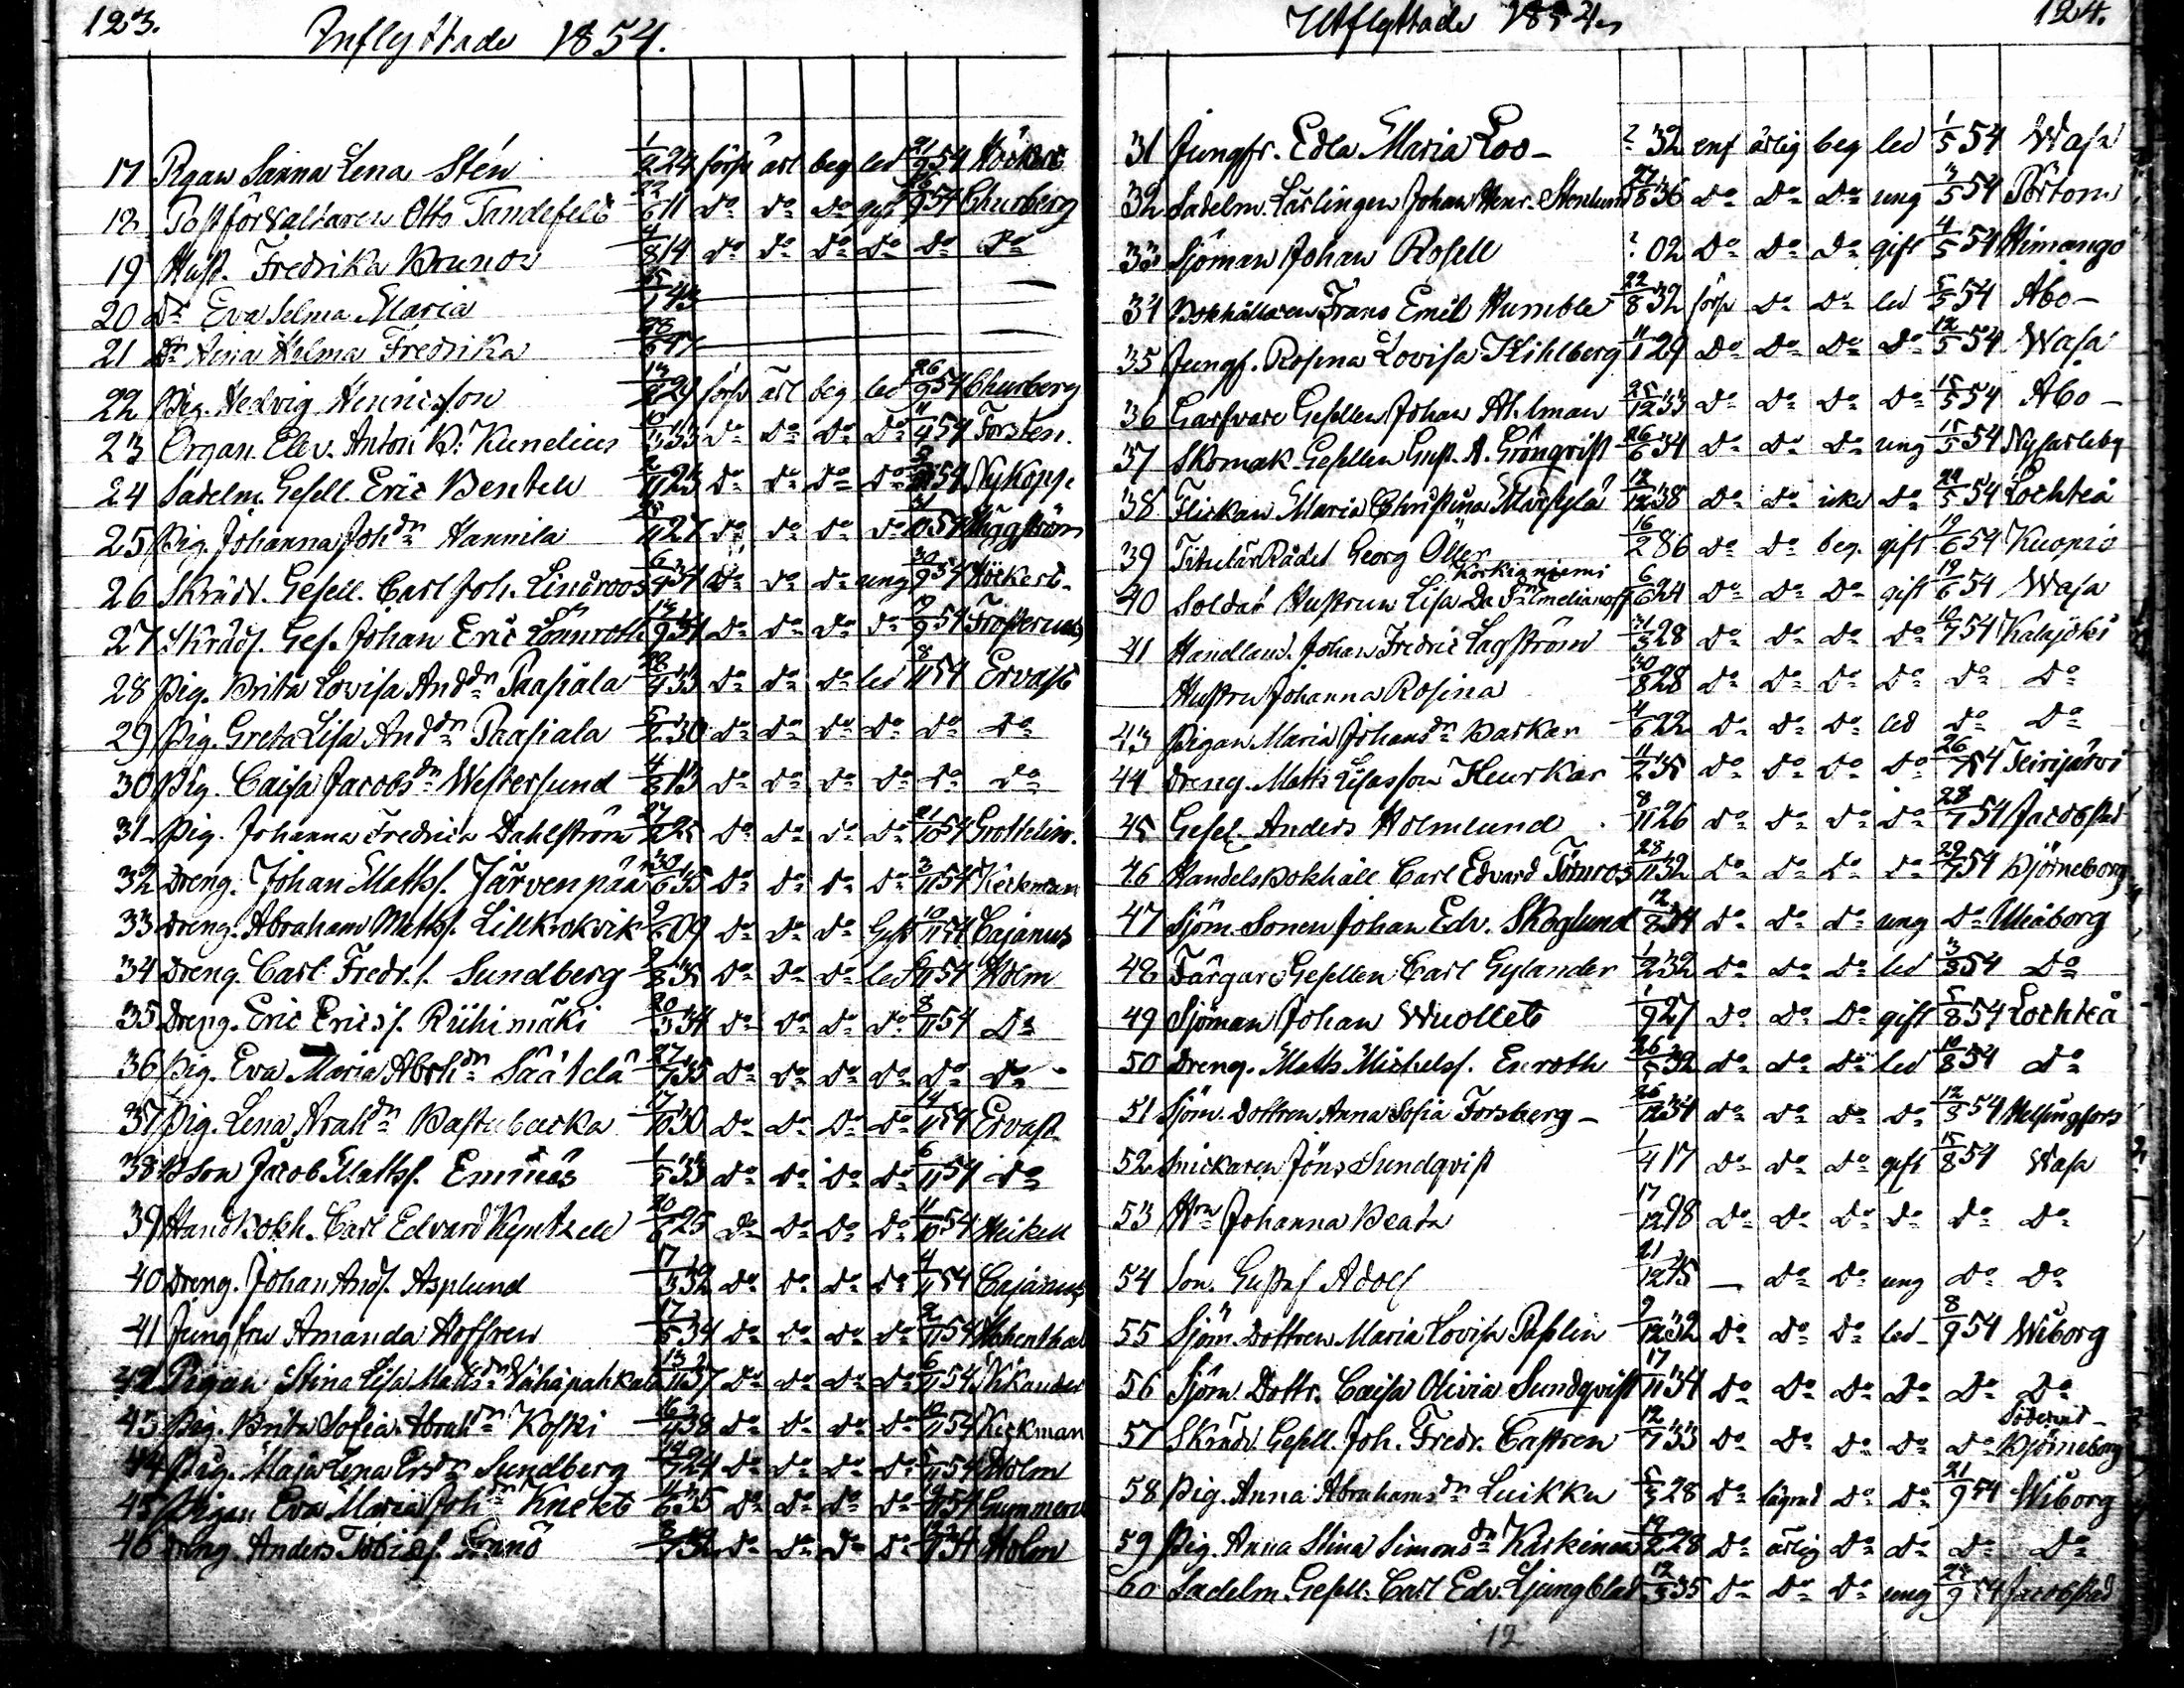 123.
Inflyttade 1854.
17 Pigan Sanna Lena Stén 1/2 24 förs ärl beg led 21/9 54 Höckert
18 Postförvaltaren Otto Tandefelt 22/6 11 Do Do Do gift 54 Churberg
19 Hust. Fredrika Brunou 4/8 14 Do Do Do Do Do Do
20 Dr Eva Selma Maria 43
21 Dr Aina Helma Fredrika 47
22 Pig. Hedvig Henricsson 29 förs ärl beg led 26/9 54 Churberg
23 Organ. Elev. Anton B. Kunelius 33 Do Do Do Do 11/9 54 Forsten.
24 Sadelm. Gesell. Eric Benteli 2/11 23 Do Do Do Do 54 Nykopp.
25 Pig. Johanna Johdr Hannila 27 Do Do Do Do 54 Häggström
26 Skrädd. Gesell. Carl Joh. Lindroos 34 Do Do Do ung 30/9 54 Höckert.
27 Skrädd. Ges. Johan Eric Lönnroth 13/9 34 Do Do Do Do 54 Frosterus
28 Pig. Brita Lovisa Anddr Paasiala 33 Do Do Do led 8/11 54 Ervast
29 Pig. Greta Lisa Anddr Paasiala 5/2 30 Do Do Do Do Do Do
30 Pig. Caisa Jacobsdr Westersund 4/8 13 Do Do Do Do Do Do
31 Pig. Johanna Fredrica Dahlström 27/2 25 Do Do Do Do 21/10 54 Grothelin.
32 Dreng. Johan Mathss. Järvenpää 30/6 35 Do Do Do Do 3/11 54 Keckman
33 Dreng. Abraham Mathss. Lillkrokvik 9/6 09 Do Do Do Gift 10/11 54 Cajanus
34 Dreng. Carl Fredr.s. Sundberg 9/8 35 Do Do Do led 54 Holm
35 Dreng. Eric Ericss. Riihimäki 20/3 34 Do Do Do Do 8/11 54 Do
36 Pig. Eva Maria Abrhdr Säätelä 27/7 35 Do Do Do Do Do Do
37 Pig. Lena Arahdr Bastubacka 17/10 30 Do Do Do Do 14/11 54 Ervast.
38 Bson Jacob Mathss. Emnäs 1/5 33 Do Do Do Do 6/11 54 Do
39 Handbokh. Carl Edvard Kyntzell 20/6 25 Do Do Do Do 11/10 54 Heikell
40 Dreng. Johan Ands. Asplund 17/3 32 Do Do Do Do 4/11 54 Cajanus
41 Jungfru Amanda Hoffren 17/5 34 Do Do Do Do 9/11 54 Hohenthal
42 Pigan Stina Lisa Mattsdr Vähäpahkala 13/11 37 Do Do Do Do 6/11 54 Wikander
43 Pig. Brita Sofia Abrahdr Koski 16/4 38 Do Do Do Do 10/11 54 Keckman
44 Pig. Maja Lena Ersdr Sundberg 19/7 24 Do Do Do Do 5/11 54 Holm
45 Pigan Eva Maria Johdr Knekt 11/6 35 Do Do Do Do 54 Gummerus
46 Dräng. Anders Tobiass. Granö 32 Do Do Do Do 54 Holm
Utflyttade 1854
124.
31 Jungfr. Edla Maria Loo ? 32 enf ärlig beg led 1/5 54 Wasa
32 Sadelm. Lärlingen Johan Henr. Stenlund 27/8 36 Do Do Do ung 3/5 54 Pörtom
33 Sjöman Johan Rosell ? 02 Do Do Do gift 4/5 54 Himango
34 Bokhållaren Frans Emil Humble 22/8 32 förs Do Do led 5/5 54 Åbo
35 Jungf. Rosina Lovisa Kihlberg 11/1 29 Do Do Do Do 12/5 54 Wasa
36 Garfvare Gesellen Johan Ahlman 25/12 33 Do Do Do Do 15/5 54 Åbo
37 Skomak. Gesellen Gust. A. Grönqvist 26/6 34 Do Do Do ung 15/5 54 Nykarleby
38 Flickan Maria Christina Marsylä 12/12 38 Do Do icke Do 24/5 54 Lochteå
39 Titulär Rådet Georg Öller 16/2 86 Do Do beg. gift 19/6 54 Kuopio
Korkianiemi
40 Soldat Hustrun Lisa Da dr Emelianoff 6/6 24 Do Do Do gift 19/6 54 Wasa
41 Handland. Johan Fredric Lagström 31/3 28 Do Do Do Do 10/7 54 Kalajoki
Hustru Johanna Rosina 30/8 28 Do Do Do Do Do Do
43 Pigan Maria Johansdr Backer 4/6 22 Do Do Do led Do Do
44 Dreng. Matts Lisasson Heurkar 11/2 35 Do Do Do Do 26/7 54 Teirijärvi
45 Gesel. Anders Holmlund 8/11 26 Do Do Do Do 28/7 54 Jacobstad
46 Handelsbokhåll Carl Edvard Törnroos 28/11 32 Do Do Do Do 29/7 54 Björneborg
47 Sjöm. Sonen Johan Edv. Skoglund 12/8 34 Do Do Do ung Do Uleåborg
48 Färgare Gesellen Carl Gylander 1/2 32 Do Do Do led 3/8 54 Do
49 Sjöman Johan Wuollet 1/9 27 Do Do Do gift 5/8 54 Lochteå
50 Dreng. Matts Michelss. Enroth 26/5 32 Do Do Do led 10/8 54 Do
51 Sjöm. Dottren Anna Sofia Forsberg 26/12 34 Do Do Do Do 12/8 54 Helsingfors
52 Snickaren Jöns Sundqvist 1/4 17 Do Do Do gift 15/8 54 Wasa
53 Hn Johanna Beata 17/12 18 Do Do Do Do Do Do
54 Son. Gustaf Adolf 21/12 45 — Do Do ung Do Do
55 Sjöm. Dottren Maria Lovisa Paslin 9/12 32 Do Do Do led 8/9 54 Wiborg
56 Sjöm. Dottr. Caisa Olivia Sundqvist 17/11 34 Do Do Do Do Do Do
57 Skrädd. Gesell. Joh. Fredr. Castren 12/7 33 Do Do Do Do Do Björneborg
58 Pig. Anna Abrahamsdr Luikku 5/3 28 Do lägrad Do Do 21/9 54 Wiborg
59 Pig. Anna Stina Simonsdr Kärkinen 19/2 28 Do ärlig Do Do Do Do
60 Sadelm. Gesell. Carl Edv. Ljungblad 12/3 35 Do Do Do ung 54 Jacobstad
12